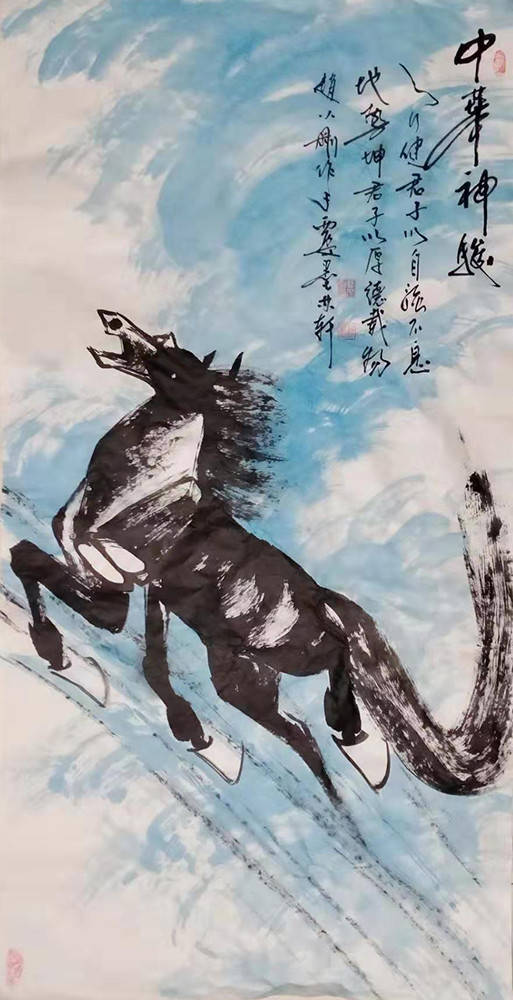 中華神駿
天行健君子以自强不息
地勢坤君子以厚德載物
作于墨林轩